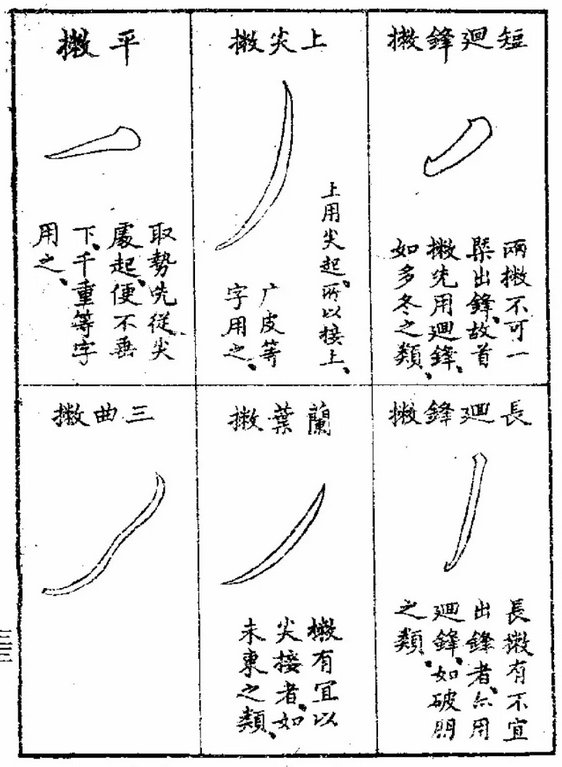 短廻鋒撇
兩撇不可一
槩出鋒、故首
撇先用廻鋒、
如多冬之類、
上尖撇
上用尖起、所以接上、
广皮等
字用之、
平撇
取勢先從尖
處起、便不垂
下、千重等字
用之、
長廻鋒撇
長撇有不宜
出鋒者、亦用
廻鋒、如破朋
之類、
蘭葉撇
撇有宜以
尖接者、如
未東之類、
三曲撇